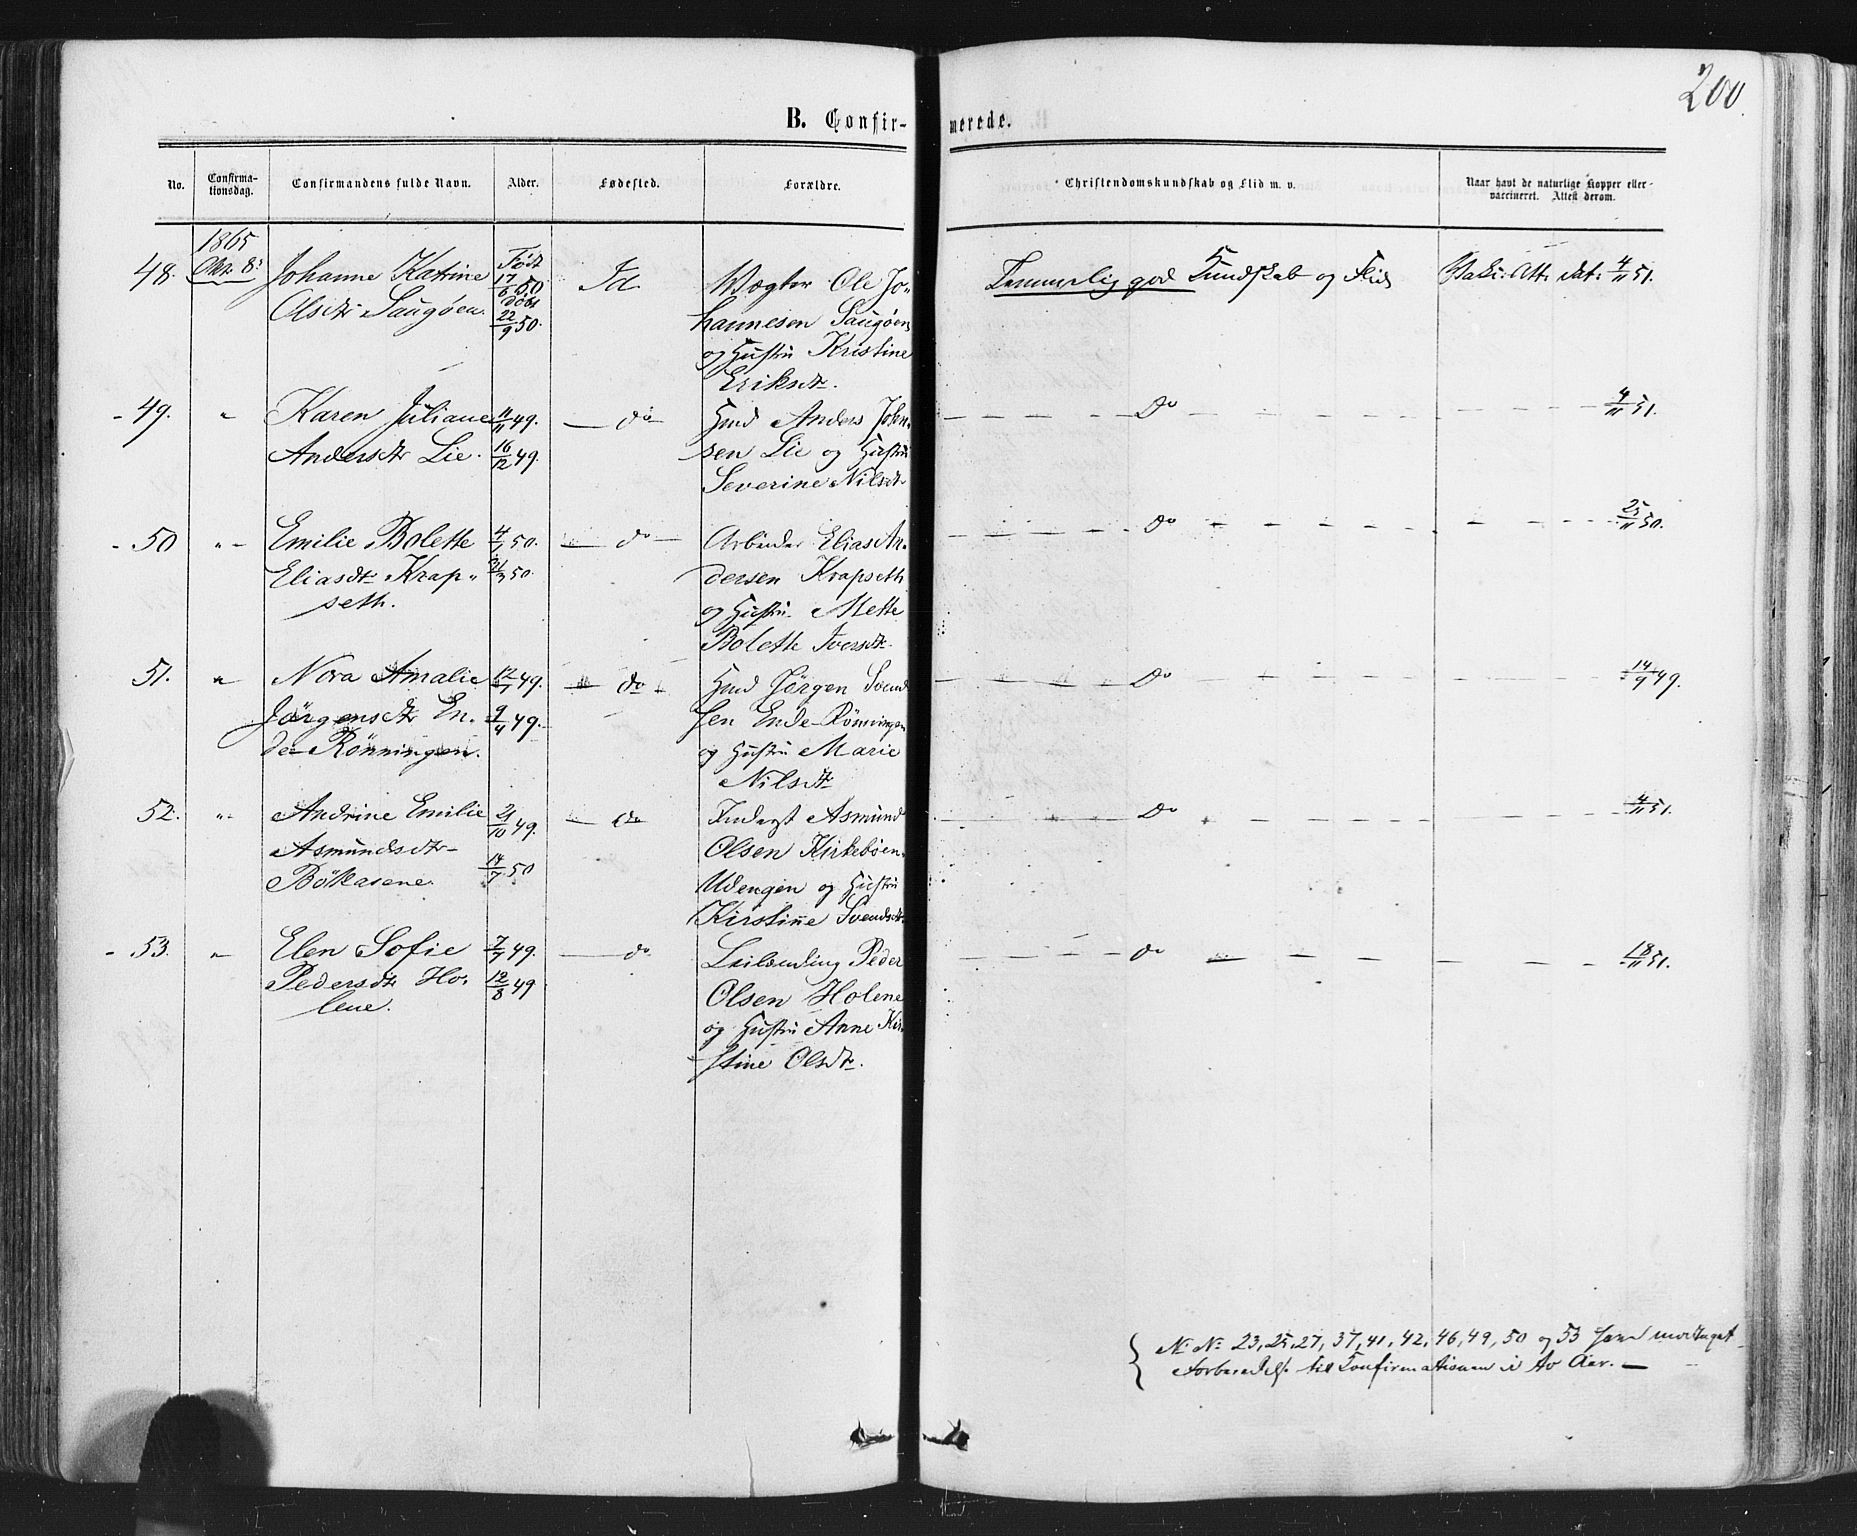 200.
B. Confirmerede.
No.
Confirmationsdag.
Confirmandens fulde Navn.
Alder.
Fødested.
Forældre.
Christendomskundskab og Flid m. v.
Naar havt de naturlige Kopper eller vaccineret. Attest derom.
1865
48. Okt. 8de Johanne Katrine Født Id Vægter Ole Jo- Temmelig god Kundskab og Flid Vaks: Att: dat: 4/11 51.
Olsdtr Saugøen. 17/6 50. hannesen Saugøen
døbt 22/9 50. og Hustru Kristine
Eriksdtr.
- 49. " Karen Juliane 11/11 49. — do — Hmd Anders Johan- Do 4/11 51.
Andersdtr Lie. 16/12 49. sen Lie og Hustru
Severine Nilsdtr
- 50 " - Emilie Bolette 4/1 50. — do — Arbeider Elias An- Do 25/11 50.
Eliasdtr Krap- 31/3 50. dersen Krapseth
seth. og Hustru Mette
Bolette Iversdtr.
51. " Nora Amalie 12/7 49. — do - Hmd Jørgen Svend- Do 14/9 49.
Jørgensdtr En- 9/4 49. sen Ende-Rønningen
de-Rønningen. og Hustru Marie
Nilsdtr
52. " Andrine Emilie 21/10 49. — do Inderst Asmund Do 4/11 51.
Asmundsdtr- Olsen Kirkebøen-
Bökasene. 14/7 50 Udengen og Hustru
Kirstine Svendsdtr
- 53. " Elen Sofie 7/7 49. — do Leilending Peder Do 18/11 51.
Pedersdtr Ho- 12/8 49 Olsen Holene
lene. og Hustru Anne Kir-
stine Olsdtr.
N. No 23, 25, 27, 37, 41, 42, 46, 49, 50 og 53 have modtaget
Forberedelse til Confirmationen i to Aar. —